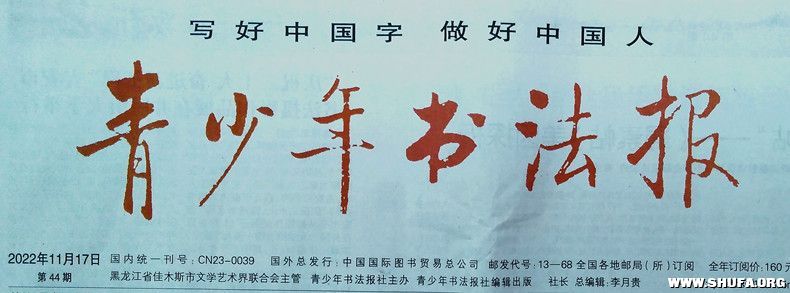 写好中国字 做好中国人
青少年书法报
2022年11月17日 国内统一刊号:CN23-0039 国外总发行:中国国际图书贸易总公司 邮发代号:13—68 全国各地邮局(所)订阅 全年订阅价:160元
第44期 黑龙江省佳木斯市文学艺术界联合会主管 青少年书法报社主办 青少年书法报社编辑出版 社长 总编辑:李月贵
WWW.SHUFA.ORG